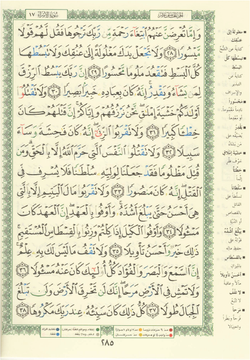 وَإِمَّا تُعْرِضَنَّ عَنْهُمُ ٱبْتِغَآءَ رَحْمَةٍ مِّن رَّبِّكَ تَرْجُوهَا فَقُل لَّهُمْ قَوْلًا
مَّيْسُورًا ﴿٢٨﴾ وَلَا تَجْعَلْ يَدَكَ مَغْلُولَةً إِلَىٰ عُنُقِكَ وَلَا تَبْسُطْهَا
كُلَّ ٱلْبَسْطِ فَتَقْعُدَ مَلُومًا مَّحْسُورًا ﴿٢٩﴾ إِنَّ رَبَّكَ يَبْسُطُ ٱلرِّزْقَ
لِمَن يَشَآءُ وَيَقْدِرُ إِنَّهُۥ كَانَ بِعِبَادِهِۦ خَبِيرًۢا بَصِيرًا ﴿٣٠﴾ وَلَا تَقْتُلُوٓا۟
أَوْلَٰدَكُمْ خَشْيَةَ إِمْلَٰقٍ نَّحْنُ نَرْزُقُهُمْ وَإِيَّاكُمْ إِنَّ قَتْلَهُمْ كَانَ
خِطْـًٔا كَبِيرًا ﴿٣١﴾ وَلَا تَقْرَبُوا۟ ٱلزِّنَىٰٓ إِنَّهُۥ كَانَ فَٰحِشَةً وَسَآءَ
سَبِيلًا ﴿٣٢﴾ وَلَا تَقْتُلُوا۟ ٱلنَّفْسَ ٱلَّتِى حَرَّمَ ٱللَّهُ إِلَّا بِٱلْحَقِّ وَمَن
قُتِلَ مَظْلُومًا فَقَدْ جَعَلْنَا لِوَلِيِّهِۦ سُلْطَٰنًا فَلَا يُسْرِف فِّى
ٱلْقَتْلِ إِنَّهُۥ كَانَ مَنصُورًا ﴿٣٣﴾ وَلَا تَقْرَبُوا۟ مَالَ ٱلْيَتِيمِ إِلَّا بِٱلَّتِى
هِىَ أَحْسَنُ حَتَّىٰ يَبْلُغَ أَشُدَّهُۥ وَأَوْفُوا۟ بِٱلْعَهْدِ إِنَّ ٱلْعَهْدَ كَانَ
مَسْـُٔولًا ﴿٣٤﴾ وَأَوْفُوا۟ ٱلْكَيْلَ إِذَا كِلْتُمْ وَزِنُوا۟ بِٱلْقِسْطَاسِ ٱلْمُسْتَقِيمِ
ذَٰلِكَ خَيْرٌ وَأَحْسَنُ تَأْوِيلًا ﴿٣٥﴾ وَلَا تَقْفُ مَا لَيْسَ لَكَ بِهِۦ عِلْمٌ
إِنَّ ٱلسَّمْعَ وَٱلْبَصَرَ وَٱلْفُؤَادَ كُلُّ أُو۟لَٰٓئِكَ كَانَ عَنْهُ مَسْـُٔولًا ﴿٣٦﴾
وَلَا تَمْشِ فِى ٱلْأَرْضِ مَرَحًا إِنَّكَ لَن تَخْرِقَ ٱلْأَرْضَ وَلَن تَبْلُغَ
ٱلْجِبَالَ طُولًا ﴿٣٧﴾ كُلُّ ذَٰلِكَ كَانَ سَيِّئُهُۥ عِندَ رَبِّكَ مَكْرُوهًا ﴿٣٨﴾
٢٨٥